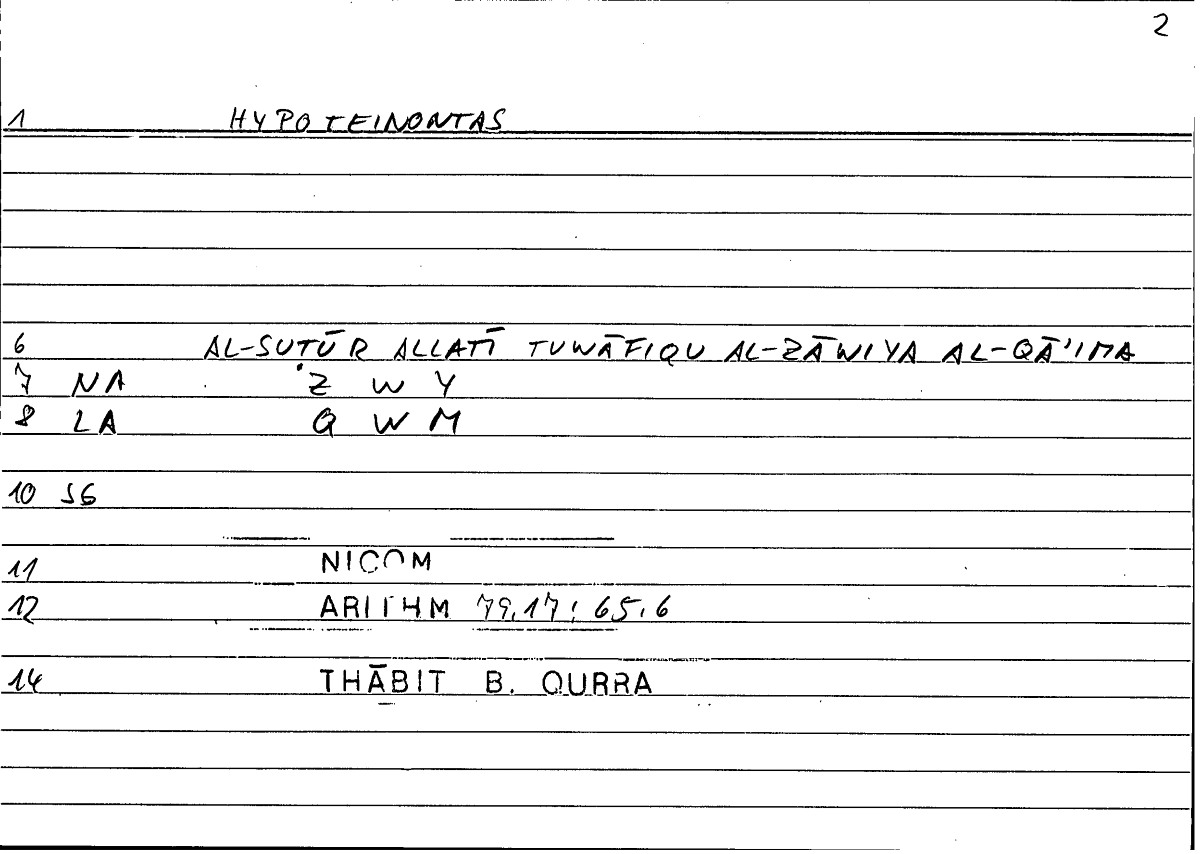 2
1 HYPOTEINONTAS
6 AL-SUTŪR ALLATĪ TUWĀFIQU AL-ZĀWIYA AL-QĀ'IMA
7 NA Z W Y
8 LA Q W M
10 SG
11 NICOM
12 ARITHM 79,17; 65,6
14 THĀBIT B. QURRA